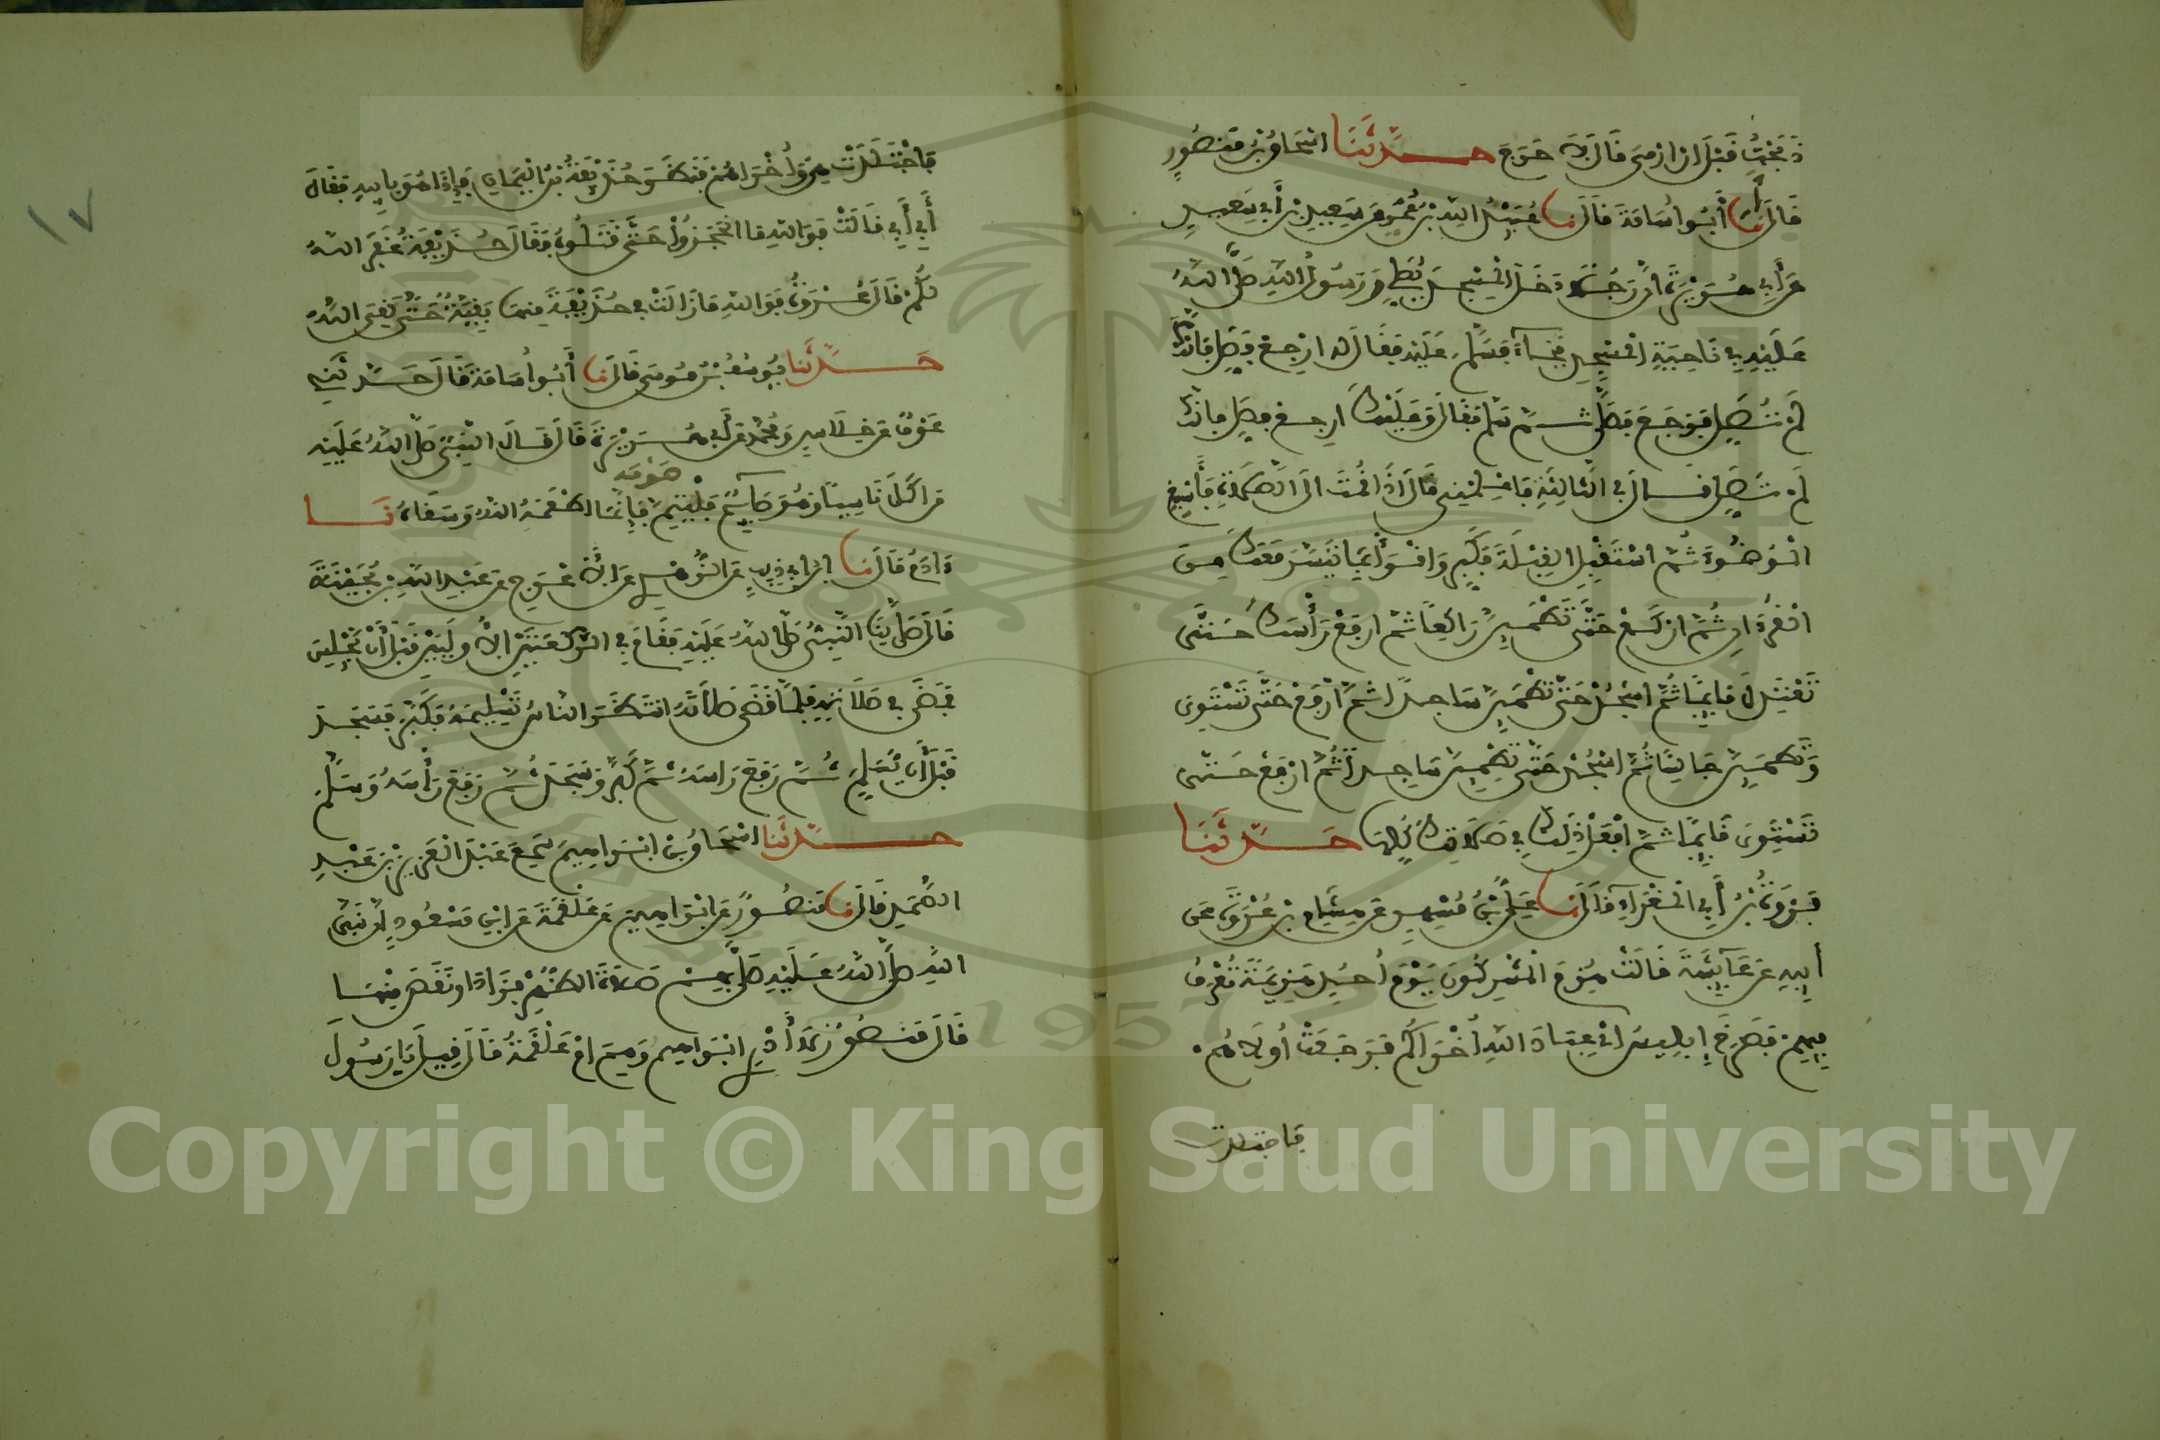 ذبحت قبل ان ارمى قال لا حرج حدثنا اسحاق بن منصور
قال نا أبوا سامة قال نا عبيد الله بن عمر عن سعيد بن أبي سعيد
عن أبي هريرة أن رجلا دخل المسجد يصلي ورسول الله صلى الله
عليه في ناحية المسجد فجاء فسلم عليه فقال له ارجع فصل فإنك
لم تصل فرجع فصلى ثم سلم فقال وعليك ارجع فصل فإنك
لم تصل قال في الثالثة فأعلمني قال إذا قمت الى الصلاة فأسبغ
الوضوء ثم استقبل القبلة فكبر واقرأ بما تيسر معك من
القرءان ثم اركع حتى تطمين راكعا ثم ارفع رأسك حتى
تعتدل قايما ثم اسجد حتى تطمين ساجدا ثم ارفع حتى تستوى
وتطمين جالسا ثم اسجد حتى تطمين ساجدا ثم ارفع حتى
تستوى قايما ثم افعل ذلك في صلاتك كلها حدثنا
فروة بن أبي المغراء قال نا علي بن مسهر عن هشام بن عروة عن
أبيه عن عايشة قالت هزم المشركون يوم أحد هزيمة تعرف
فيهم فصرخ إبليس أي عباد الله أخراكم فرجعت أولاهم
فاجتلدت
فاجتلدت هي وأخراهم فنظر حذيفة بن اليمان فإذا هو بابيه فقال
أبي أبي قالت فوالله ما انحجزوا حتى قتلوه فقال حذيفة غفر الله
لكم قال عروة فوالله ما زالت في حذيفة منها بقية حتى لقي الله
حدثنا يوسف بن موسى قال نا أبوا سامة قال حدثني
عوف عن خلاس ومحمد عن أبي هريرة قال قال النبي صلى الله عليه
من اكل ناسيا وهو صايم فليتم صومه فإنما اطعمه الله وسقاه نا
ءادم قال نا ابن ابي ذيب عن الزهري عن الاعرج عن عبد الله بن بحينة
قال صلى بنا النبي صلى الله عليه فقام في الركعتين الاوليين قبل أن يجلس
فمضى في صلاته فلما قضى صلاته انتظر الناس تسليمه فكبر فسجد
قبل أن يسلم ثم رفع راسه ثم كبر وسجد ثم رفع رأسه وسلم
حدثنا اسحاق بن ابراهيم سمع عبد العزيز بن عبد
الصمد قال نا منصور عن ابراهيم عن علقمة عن ابن مسعود ان نبي
الله صلى الله عليه صلى بهم صلاة الظهر فزاد او نقص منها
قال منصور لا أدري ابراهيم وهم ام علقمة قال قيل يا رسول
١٧
Copyright © King Saud University
1957